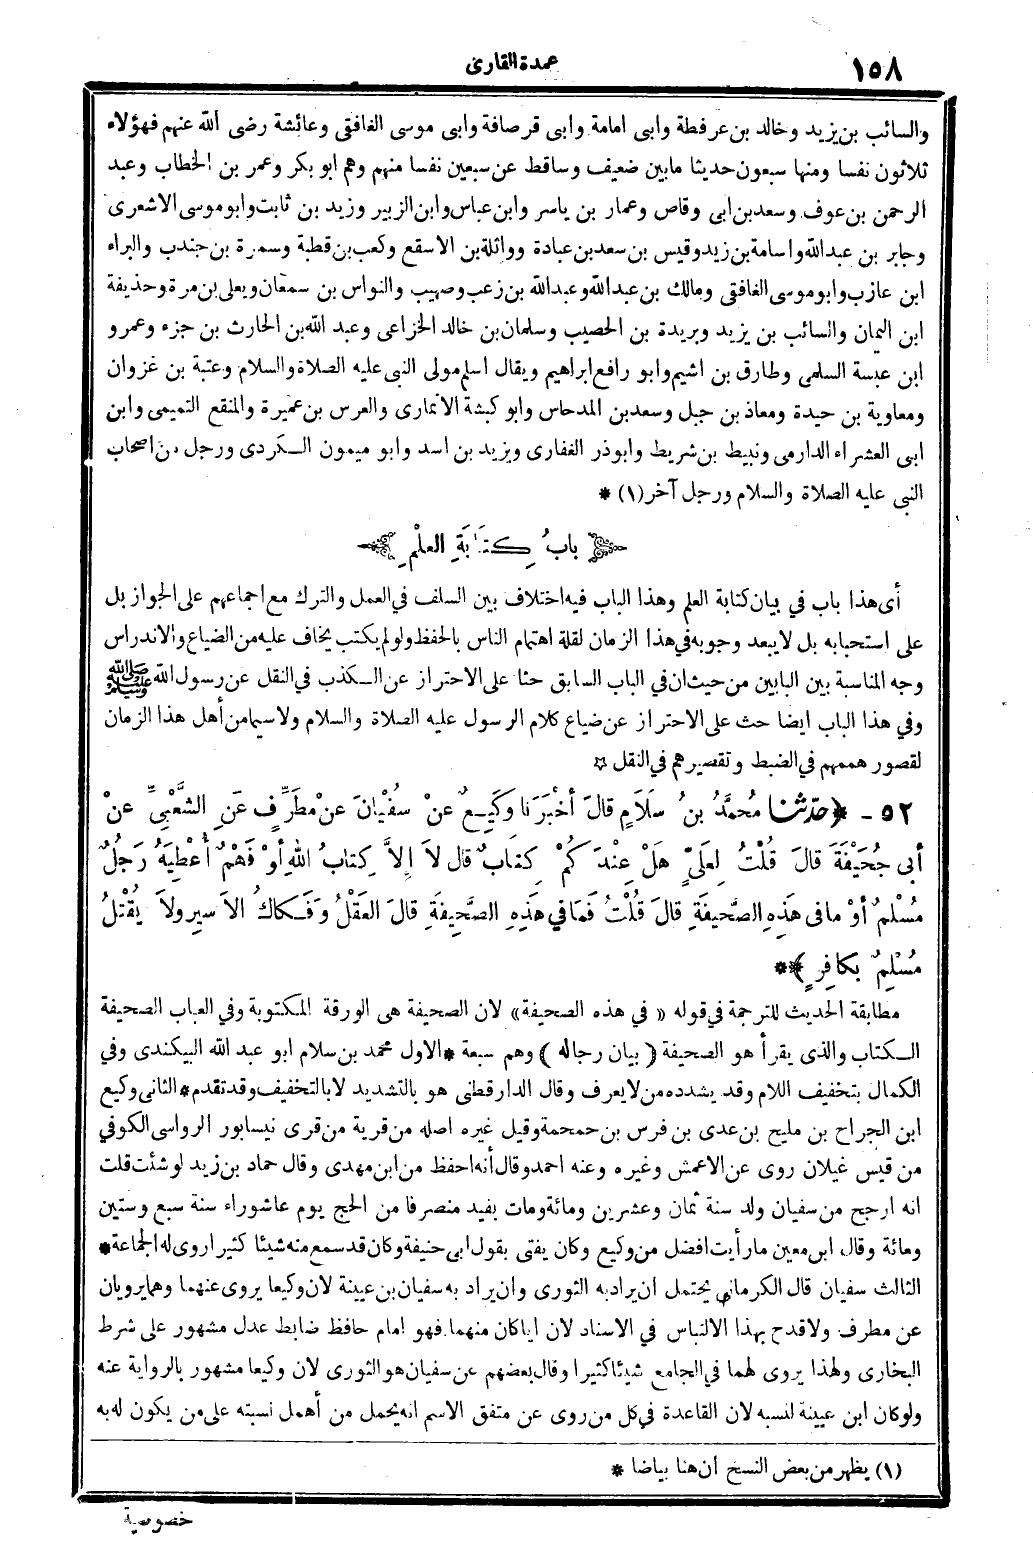 ١٥٨
عمدة القارى
والسائب بن يزيد وخالد بن عرفطة وابى امامة وابى قرصافة وابى موسى الغافقى وعائشة رضى الله عنهم فهؤلاء
ثلاثون نفسا ومنها سبعون حديثا مابين ضعيف وساقط عن سبعين نفسا منهم وهم ابو بكر وعمر بن الخطاب وعبد
الرحمن بن عوف وسعد بن ابى وقاص وعمار بن ياسر وابن عباس وابن الزبير وزيد بن ثابت وابو موسى الاشعرى
وجابر بن عبدالله واسامة بن زيد وقيس بن سعد بن عبادة وواثلة بن الاسقع وكعب بن قطبة وسمرة بن جندب والبراء
ابن عازب وابو موسى الغافقى ومالك بن عبدالله وعبدالله بن زعب وصهيب والنواس بن سمعان ويعلى بن مرة وحذيفة
ابن اليمان والسائب بن يزيد وبريدة بن الحصيب وسلمان بن خالد الخزاعى وعبد الله بن الحارث بن جزء وعمرو
ابن عبسة السلمى وطارق بن اشيم وابو رافع ابراهيم ويقال اسلم مولى النبى عليه الصلاة والسلام وعتبة بن غزوان
ومعاوية بن حيدة ومعاذ بن جبل وسعد بن المدحاس وابو كبشة الانمارى والعرس بن عميرة والمنقع التميمى وابن
ابى العشراء الدارمى ونبيط بن شريط وابوذر الغفارى ويزيد بن اسد وابو ميمون الكردى ورجل من اصحاب
النبى عليه الصلاة والسلام ورجل آخر (١) *
بابُ كِتَابَةِ العلْمِ
أى هذا باب في بيان كتابة العلم وهذا الباب فيه اختلاف بين السلف في العمل والترك مع اجماعهم على الجواز بل
على استحبابه بل لا يبعد وجوبه في هذا الزمان لقلة اهتمام الناس بالحفظ ولو لم يكتب يخاف عليه من الضياع والاندراس
وجه المناسبة بين البابين من حيث ان في الباب السابق حثا على الاحتراز عن الكذب في النقل عن رسول الله ﷺ
وفي هذا الباب ايضا حث على الاحتراز عن ضياع كلام الرسول عليه الصلاة والسلام ولا سيما من أهل هذا الزمان
لقصور هممهم في الضبط وتقصيرهم في النقل ☆
٥٢ - ﴿حدّثنا مُحمَّدُ بنُ سَلَامٍ قالَ أخْبَرَنا وَكِيعٌ عنْ سُفْيَانَ عنْ مُطَرِّفٍ عَنِ الشَّعْبِيِّ عنْ
أبى جُحَيْفَةَ قالَ قُلْتُ لِعَلِيٍّ هَلْ عِنْدَكُمْ كِتَابٌ قال لاَ إلاَّ كِتابُ اللهِ أوْ فَهْمٌ أُعْطِيَهُ رَجُلٌ
مُسْلِمٌ أوْ مافى هَذِهِ الصَّحِيفَةِ قالَ قُلْتُ فَمَا فِي هَذِهِ الصَّحِيفَةِ قالَ العَقْلُ وَفَكاكُ الاَسِيرِ ولاَ يُقْتَلُ
مُسْلِمٌ بِكافِرٍ﴾ **
مطابقة الحديث للترجمة في قوله «في هذه الصحيفة» لان الصحيفة هى الورقة المكتوبة وفي العباب الصحيفة
الكتاب والذى يقرأ هو الصحيفة (بيان رجاله) وهم سبعة * الاول محمد بن سلام ابو عبد الله البيكندى وفي
الكمال بتخفيف اللام وقد يشدده من لا يعرف وقال الدارقطنى هو بالتشديد لا بالتخفيف وقد تقدم * الثانى وكيع
ابن الجراح بن مليح بن عدى بن فرس بن حمحمة وقيل غيره اصله من قرية من قرى نيسابور الرواسى الكوفي
من قيس غيلان روى عن الاعمش وغيره وعنه احمد وقال أنه احفظ من ابن مهدى وقال حماد بن زيد لو شئت قلت
انه ارجح من سفيان ولد سنة ثمان وعشرين ومائة ومات بفيد منصرفا من الحج يوم عاشوراء سنة سبع وستين
ومائة وقال ابن معين ما رأيت افضل من وكيع وكان يفتى بقول ابى حنيفة وكان قد سمع منه شيئا كثيرا روى له الجماعة *
الثالث سفيان قال الكرمانى يحتمل ان يراد به الثورى وان يراد به سفيان بن عيينة لان وكيعا يروى عنهما وهما يرويان
عن مطرف ولا قدح بهذا الالتباس في الاسناد لان اياكان منهما فهو امام حافظ ضابط عدل مشهور على شرط
البخارى ولهذا يروى لهما في الجامع شيئا كثيرا وقال بعضهم عن سفيان هو الثورى لان وكيعا مشهور بالرواية عنه
ولو كان ابن عيينة لنسبه لان القاعدة في كل من روى عن متفق الاسم انه يحمل من أهمل نسبته على من يكون له به
(١) يظهر من بعض النسخ ان هنا بياضا *
خصوصية